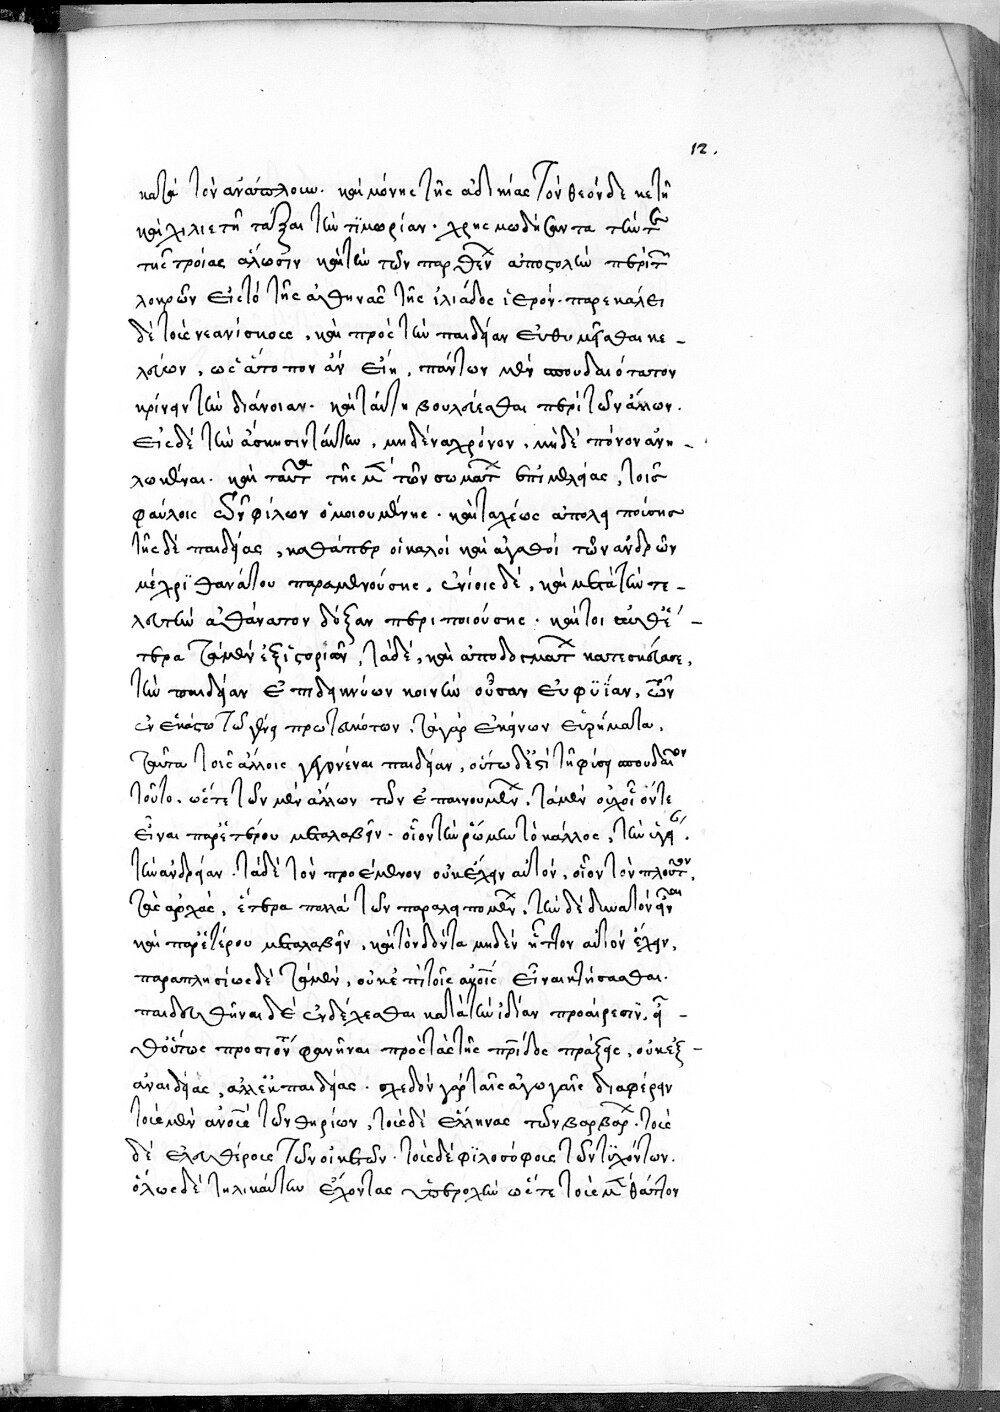 12.
κατὰ τὸν ἀνάπλουν. καὶ μόνης τῆς ἀδικίας τὸν θεὸν δεκετῆ
καὶ χιλιετῆ τάξαι τὴν τιμωρίαν. χρησμωδήσαντα τὴν τε
τῆς τροίας ἅλωσιν καὶ τὴν τῶν παρθένων ἀποστολὴν περὶ τῶν
λοκρῶν εἰς τὸ τῆς ἀθηνᾶς τῆς ἰλιάδος ἱερόν. παρεκάλει
δὲ τοὺς νεανίσκους, καὶ πρὸς τὴν παιδείαν ἐνθυμεῖσθαι κε-
λεύων, ὡς ἄτοπον ἂν εἴη, πάντων μὲν σπουδαιότατον
κρίνειν τὴν διάνοιαν. καὶ ταύτῃ βουλεύεσθαι περὶ τῶν ἄλλων.
εἰς δὲ τὴν ἄσκησιν ταύτην, μηδένα χρόνον, μηδὲ πόνον ἀνη-
λωκέναι. καὶ ταῦτα τῆς μὲν τῶν σωμάτων ἐπιμελείας, τοῖς
φαύλοις τῶν φίλων ὁμοιουμένης. καὶ ταχέως ἀπολειπούσης
τῆς δὲ παιδείας, καθάπερ οἱ καλοὶ καὶ ἀγαθοὶ τῶν ἀνδρῶν
μέχρι θανάτου παραμενούσης, ἐνίοις δὲ, καὶ μετὰ τὴν τε-
λευτὴν ἀθάνατον δόξαν περιποιούσης. καὶ τοιαῦθ' ἕ-
τερα τὰ μὲν ἐξ ἱστοριῶν, τὰ δὲ, καὶ ἀπὸ δογμάτων κατεσκεύασε,
τὴν παιδείαν ἐπιδεικνύων κοινὴν οὖσαν εὐφυΐαν, τῶν
ἐν ἑκάστῳ τῷ γένει πρωτευκότων. τὰ γὰρ ἐκείνων εὑρήματα,
ταῦτα τοῖς ἄλλοις γεγονέναι παιδείαν, οὕτω δ' ἐστὶ τῇ φύσει σπουδαῖον
τοῦτο, ὥστε τῶν μὲν ἄλλων τῶν ἐπαινουμένων, τὰ μὲν οὐχ οἷόν τε
εἶναι παρ' ἑτέρου μεταλαβεῖν. οἷον τὴν ῥώμην τὸ κάλλος, τὴν ὑγείαν.
τὴν ἀνδρείαν. τὰ δὲ τὸν προέμενον οὐκ ἔχειν αὐτόν, οἷον τὸν πλοῦτον,
τὰς ἀρχάς, ἕτερα πολλὰ τῶν παραλειπομένων, τὴν δὲ δυνατὸν εἶναι
καὶ παρ' ἑτέρου μεταλαβεῖν, καὶ τὸν δόντα μηδὲν ἧττον αὐτὸν ἔχειν,
παραπλησίως δὲ τὰ μὲν, οὐκ ἐπὶ τοῖς ἀνθρώποις εἶναι κτήσασθαι.
παιδευθῆναι δὲ ἐνδέχεσθαι κατὰ τὴν ἰδίαν προαίρεσιν, εἶ-
θ' οὕτως προσιόντων φανῆναι πρὸς τὰς τῆς πατρίδος πράξεις, οὐκ ἐξ-
ἀναιδείας, ἀλλ' ἐκ παιδείας. σχεδὸν γὰρ ταῖς ἀγωγαῖς διαφέρειν
τοὺς μὲν ἀνθρώπους τῶν θηρίων, τοὺς δὲ ἕλληνας τῶν βαρβάρων. τοὺς
δὲ ἐλευθέρους τῶν οἰκετῶν. τοὺς δὲ φιλοσόφους τῶν τυχόντων.
ὅλως δὲ τηλικαύτην ἔχοντας ὑπεροχὴν ὥστε τοὺς μὲν θᾶττον